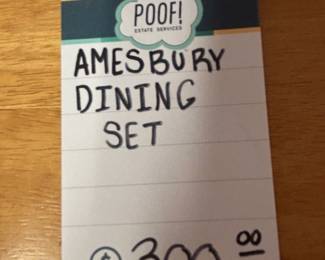 POOF!
ESTATE SERVICES
AMESBURY
DINING
SET
$300 00